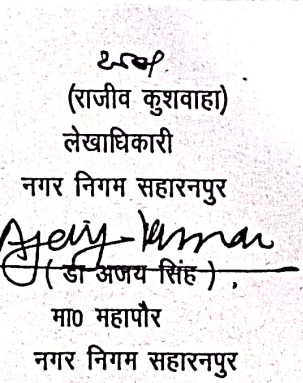 (राजीव कुशवाहा)
लेखाधिकारी
नगर निगम सहारनपुर
Ajay Kumar
( डा अजय सिंह ) .
मा0 महापौर
नगर निगम सहारनपुर